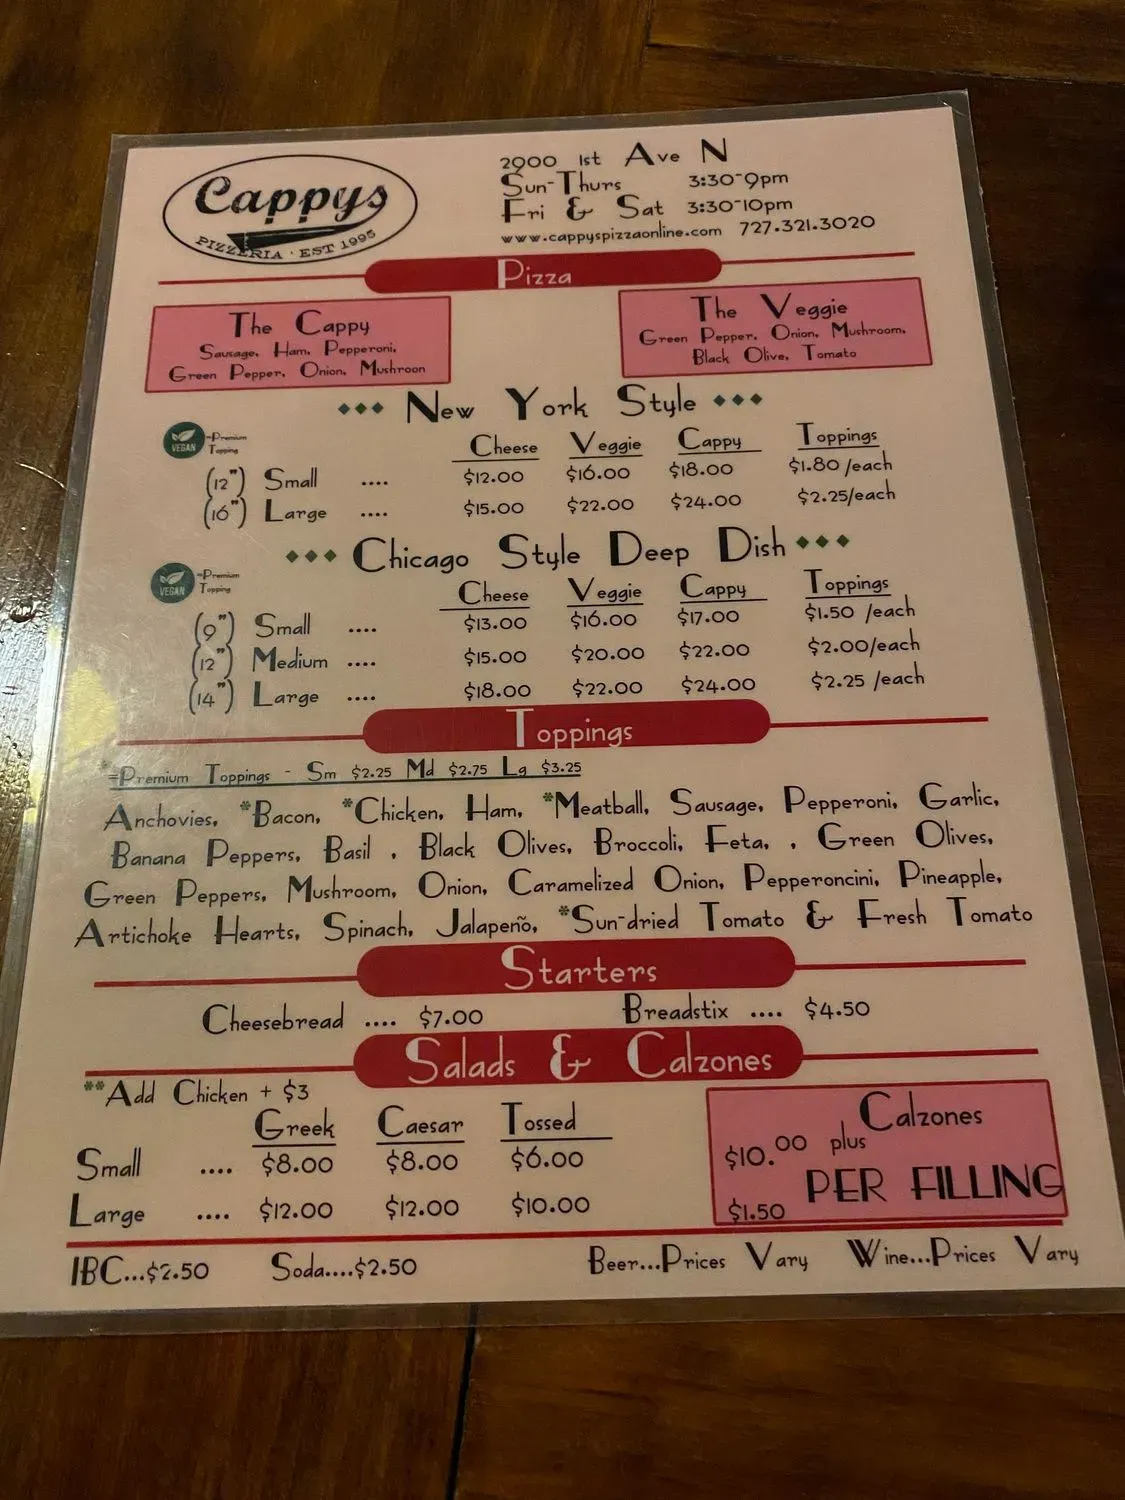 Cappys
PIZZERIA · EST 1995
2900 1st Ave N
Sun-Thurs 3:30-9pm
Fri & Sat 3:30-10pm
www.cappyspizzaonline.com 727.321.3020
Pizza
The Cappy
Sausage, Ham, Pepperoni,
Green Pepper, Onion, Mushroon
The Veggie
Green Pepper, Onion, Mushroom,
Black Olive, Tomato
New York Style
VEGAN =Premium
Topping
Cheese Veggie Cappy Toppings
(12") Small .... $12.00 $16.00 $18.00 $1.80 /each
(16") Large .... $15.00 $22.00 $24.00 $2.25/each
Chicago Style Deep Dish
VEGAN =Premium
Topping
Cheese Veggie Cappy Toppings
(9") Small .... $13.00 $16.00 $17.00 $1.50 /each
(12") Medium .... $15.00 $20.00 $22.00 $2.00/each
(14") Large .... $18.00 $22.00 $24.00 $2.25 /each
Toppings
*=Premium Toppings - Sm $2.25 Md $2.75 Lg $3.25
Anchovies, *Bacon, *Chicken, Ham, *Meatball, Sausage, Pepperoni, Garlic,
Banana Peppers, Basil , Black Olives, Broccoli, Feta, , Green Olives,
Green Peppers, Mushroom, Onion, Caramelized Onion, Pepperoncini, Pineapple,
Artichoke Hearts, Spinach, Jalapeño, *Sun-dried Tomato & Fresh Tomato
Starters
Cheesebread .... $7.00 Breadstix .... $4.50
Salads & Calzones
**Add Chicken + $3
Greek Caesar Tossed
Small .... $8.00 $8.00 $6.00
Large .... $12.00 $12.00 $10.00
Calzones
$10.00 plus
$1.50 PER FILLING
IBC...$2.50 Soda....$2.50 Beer...Prices Vary Wine...Prices Vary